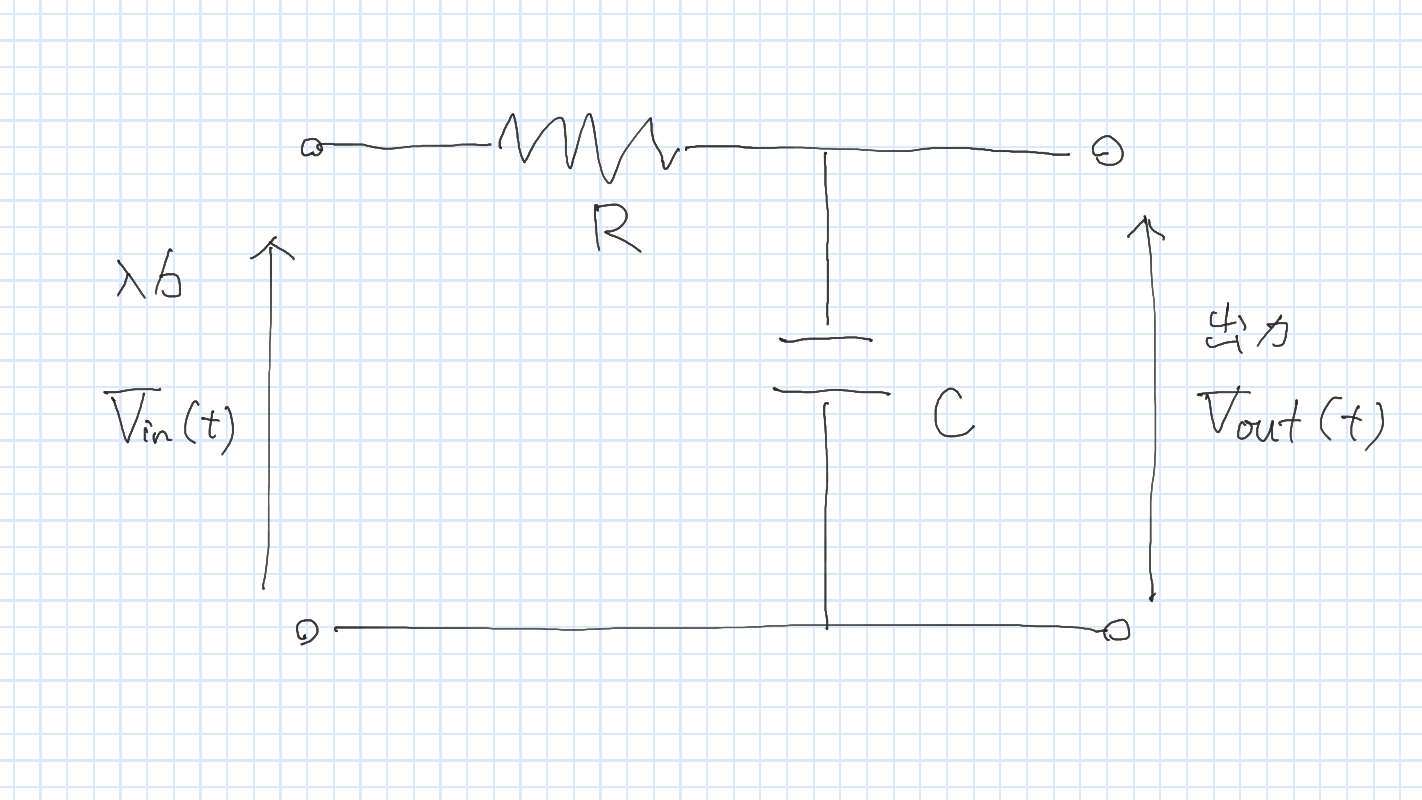 R
入力
Vin(t)
C
出力
Vout(t)